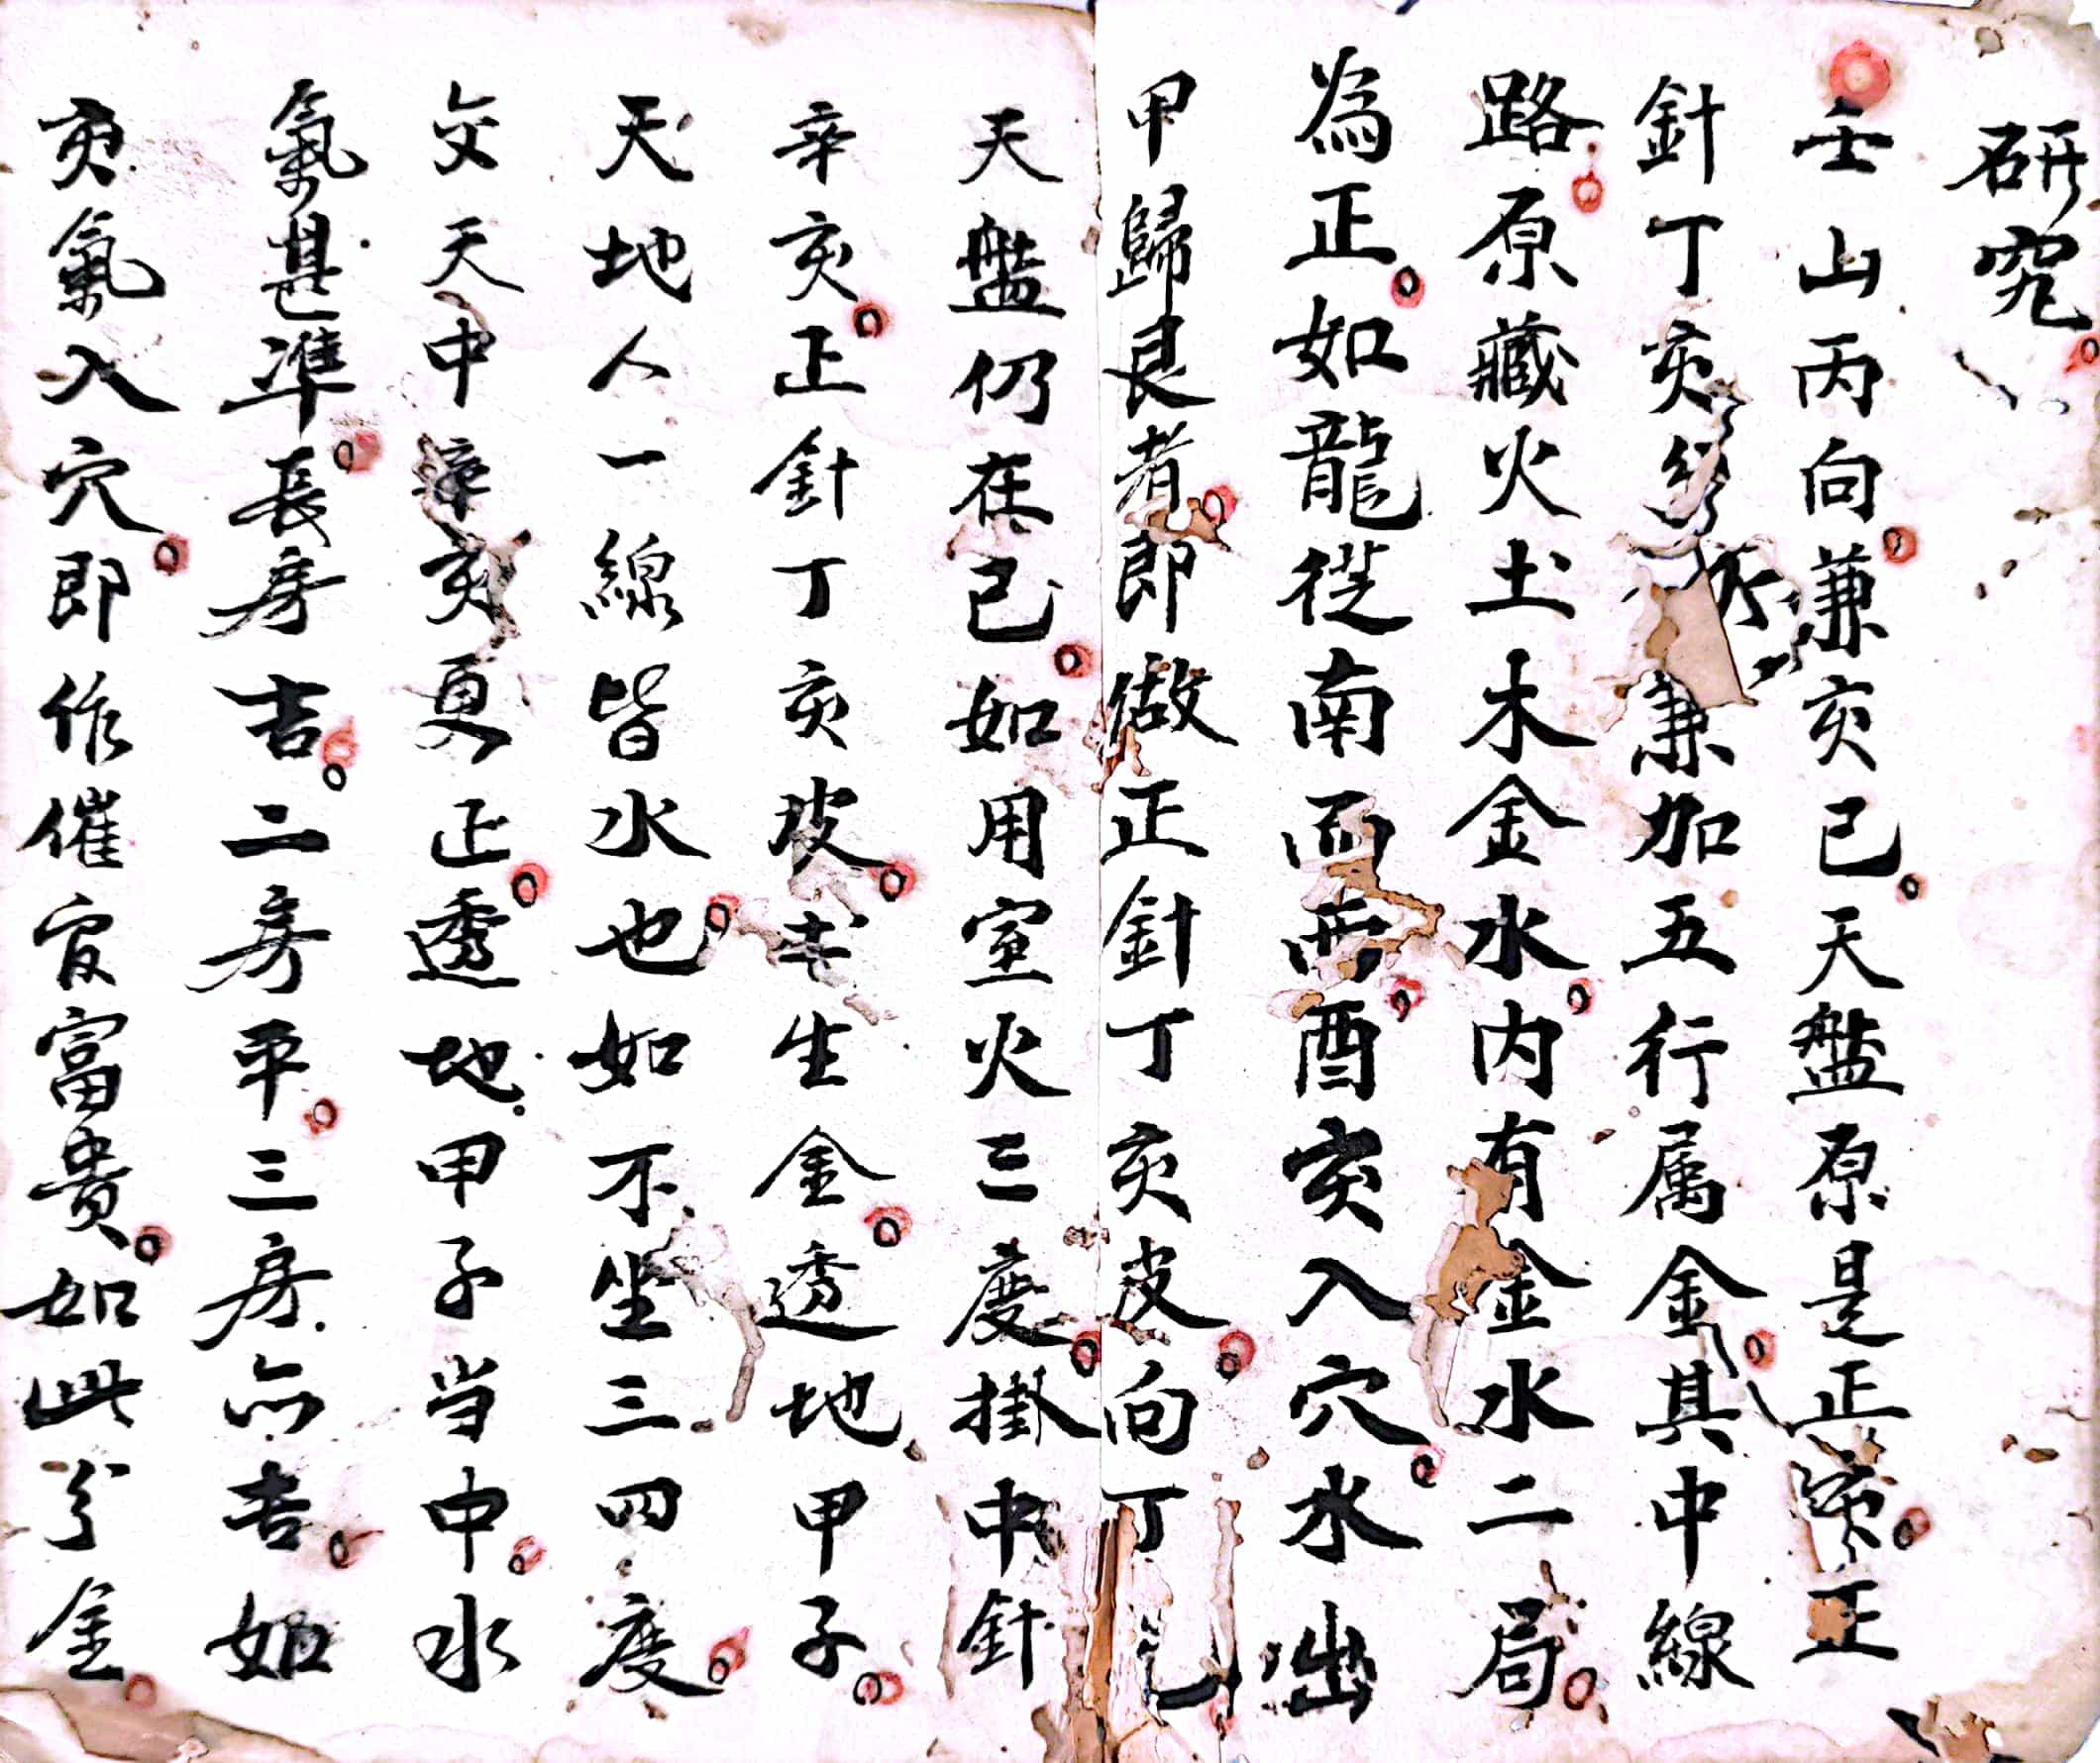 研究
壬山丙向。兼亥巳。天盤原是正亥。正
針丁亥 兼加五行属金。其中線
路。原藏火土木金水。内有金水二局。
為正。如龍從南而西。酉亥入穴。水出
甲歸艮者。即做正針丁亥皮。向丁
天盤仍在巳。如用室火三度。掛中針
辛亥。正針丁亥皮。去生金。透地甲子。
天地人一線皆水也。如不坐三四度。
文天中辛亥更正。透地甲子当中。水
氣甚準。長房吉。二房平。三房亦吉。如
亥氣入穴。即作催官富貴。如此分金。